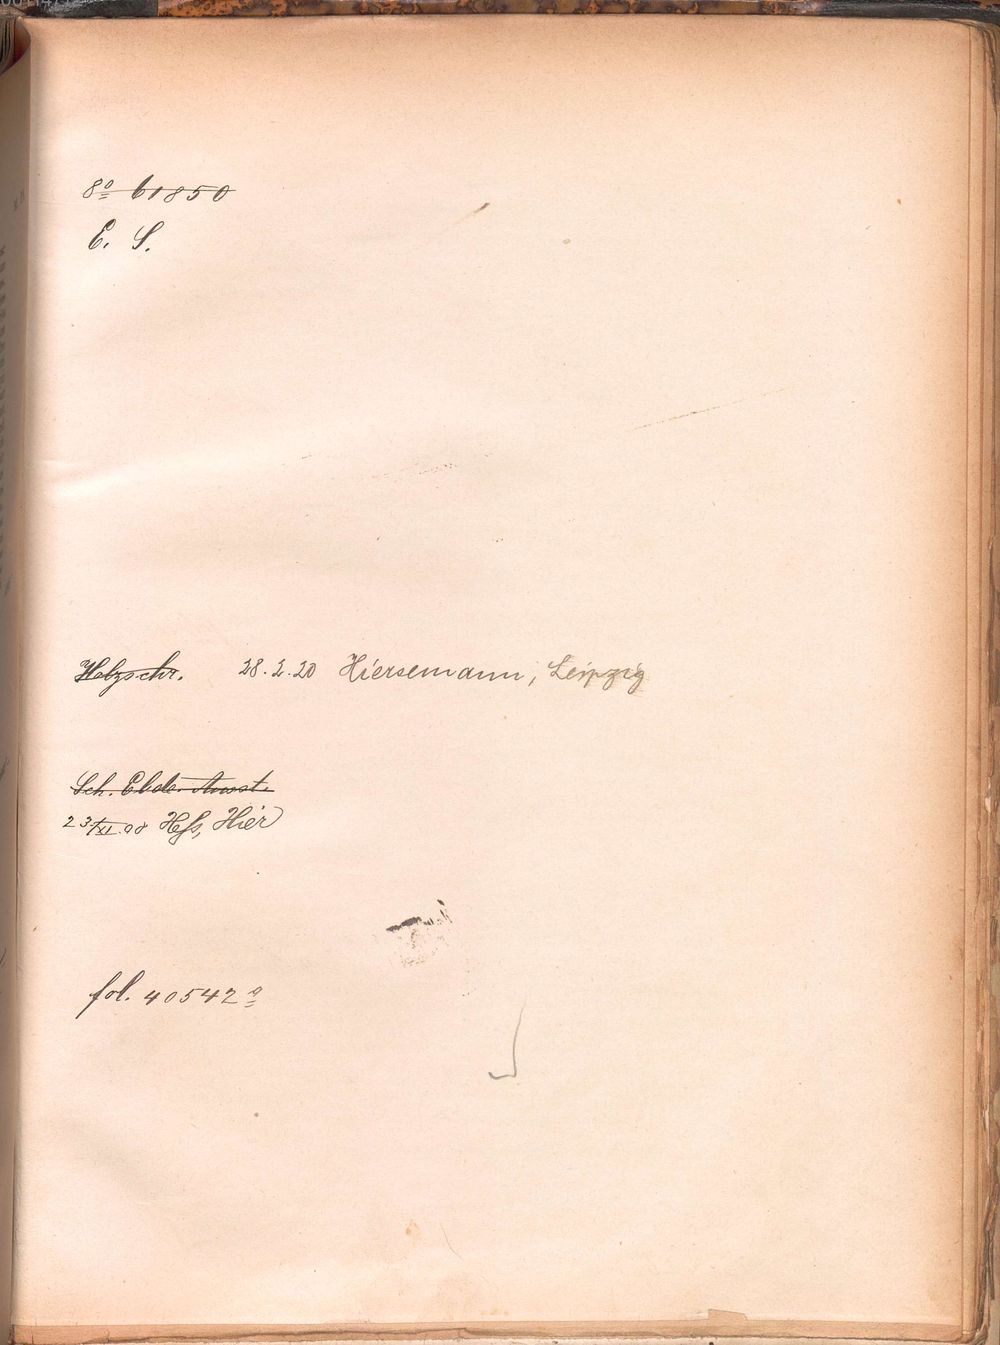 8º 61850
E. S.
Holzschr. 28.2.20 Hiersemann, Leipzig
Sch.
23/XI.08 Heß, Hier
fol. 40542 a